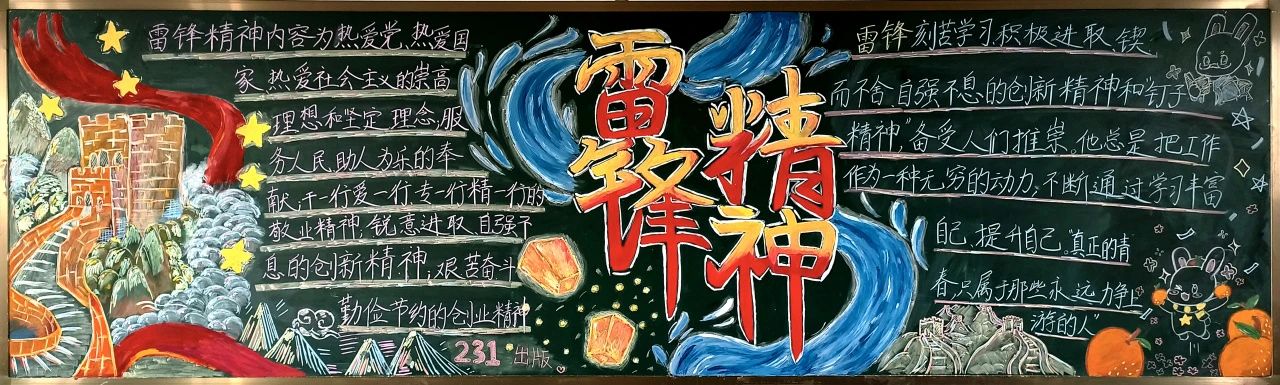 雷锋精神内容为热爱党、热爱国
家、热爱社会主义的崇高
理想和坚定理念；服
务人民、助人为乐的奉
献；干一行爱一行、专一行精一行的
敬业精神；锐意进取、自强不
息的创新精神；艰苦奋斗
勤俭节约的创业精神
231 出版
雷锋
精神
雷锋刻苦学习积极进取、锲
而不舍、自强不息的创新精神和“钉子
精神”备受人们推崇。他总是把工作
作为一种无穷的动力，不断通过学习丰富
自己、提升自己。“真正的青
春，只属于那些永远力争上
游的人”